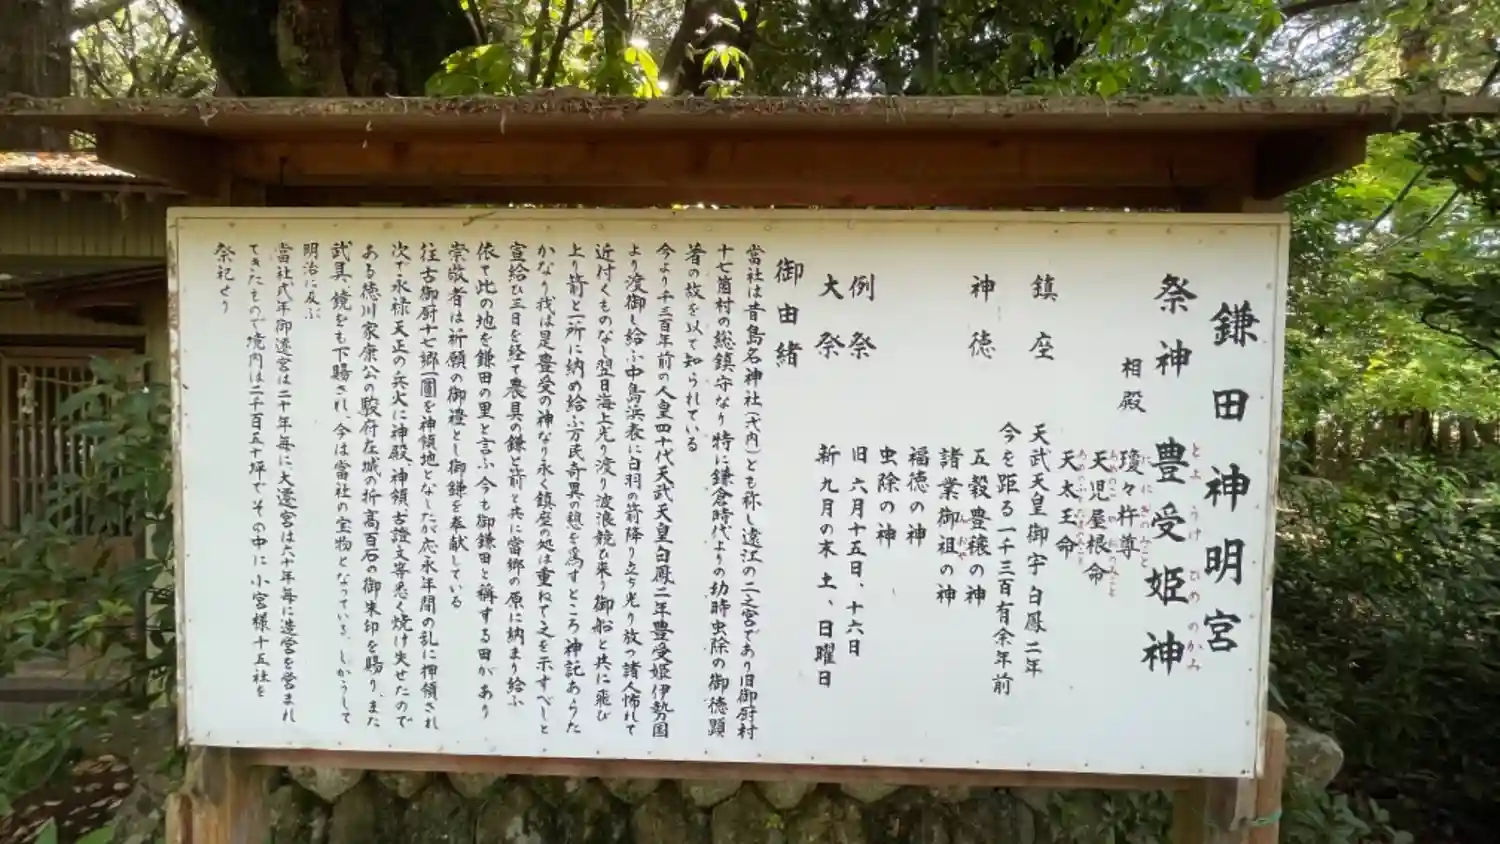 鎌田神明宮
祭神 豊受姫神
とようけひめのかみ
相殿 瓊々杵尊
ににぎのみこと
天児屋根命
あめのこやねのみこと
天太玉命
あめのふとだまのみこと
鎮座 天武天皇御宇白鳳二年
今を距る一千三百有余年前
神徳 五穀豊穣の神
諸業御祖の神
みおや
福徳の神
虫除の神
例祭 旧六月十五日、十六日
大祭 新九月の末土、日曜日
御由緒
當社は昔島名神社(式内)とも称し遠江の二之宮であり旧御厨村
十七箇村の総鎮守なり特に鎌倉時代よりの幼時虫除の御徳顕
著の故を以て知られている
今より千三百年前の人皇四十代天武天皇白鳳二年豊受姫伊勢国
より渡御し給ふ中島浜表に白羽の箭降り立ち光り放つ諸人怖れて
近付くものなし翌日海上光り渡り波浪競ひ来り御船と共に飛び
上り箭と一所に納め給ふ万民奇異の思を為すところ神記あらた
かなり我は是豊受の神なり永く鎮座の処は重ねて之を示すべしと
宣給ひ三日を経て農具の鎌と箭と共に當郷の原に納まり給ふ
依て此の地を鎌田の里と言ふ今も御鎌田と稱する田があり
崇敬者は祈願の御禮とし御鎌を奉献している
往古御厨十七郷一圓を神領地となしたが応永年間の乱に押領され
次で永禄天正の兵火に神殿、神領、古證文等悉く焼け失せたので
ある徳川家康公の駿府在城の折高百石の御朱印を賜り、また
武具、鏡をも下賜され、今は當社の宝物となっている、しかうして
明治に及ぶ
當社式年御遷宮は二十年毎に大遷宮は六十年毎に造営を営まれ
てきたもので境内は二千百五十坪でその中に小宮様十五社を
祭祀せり